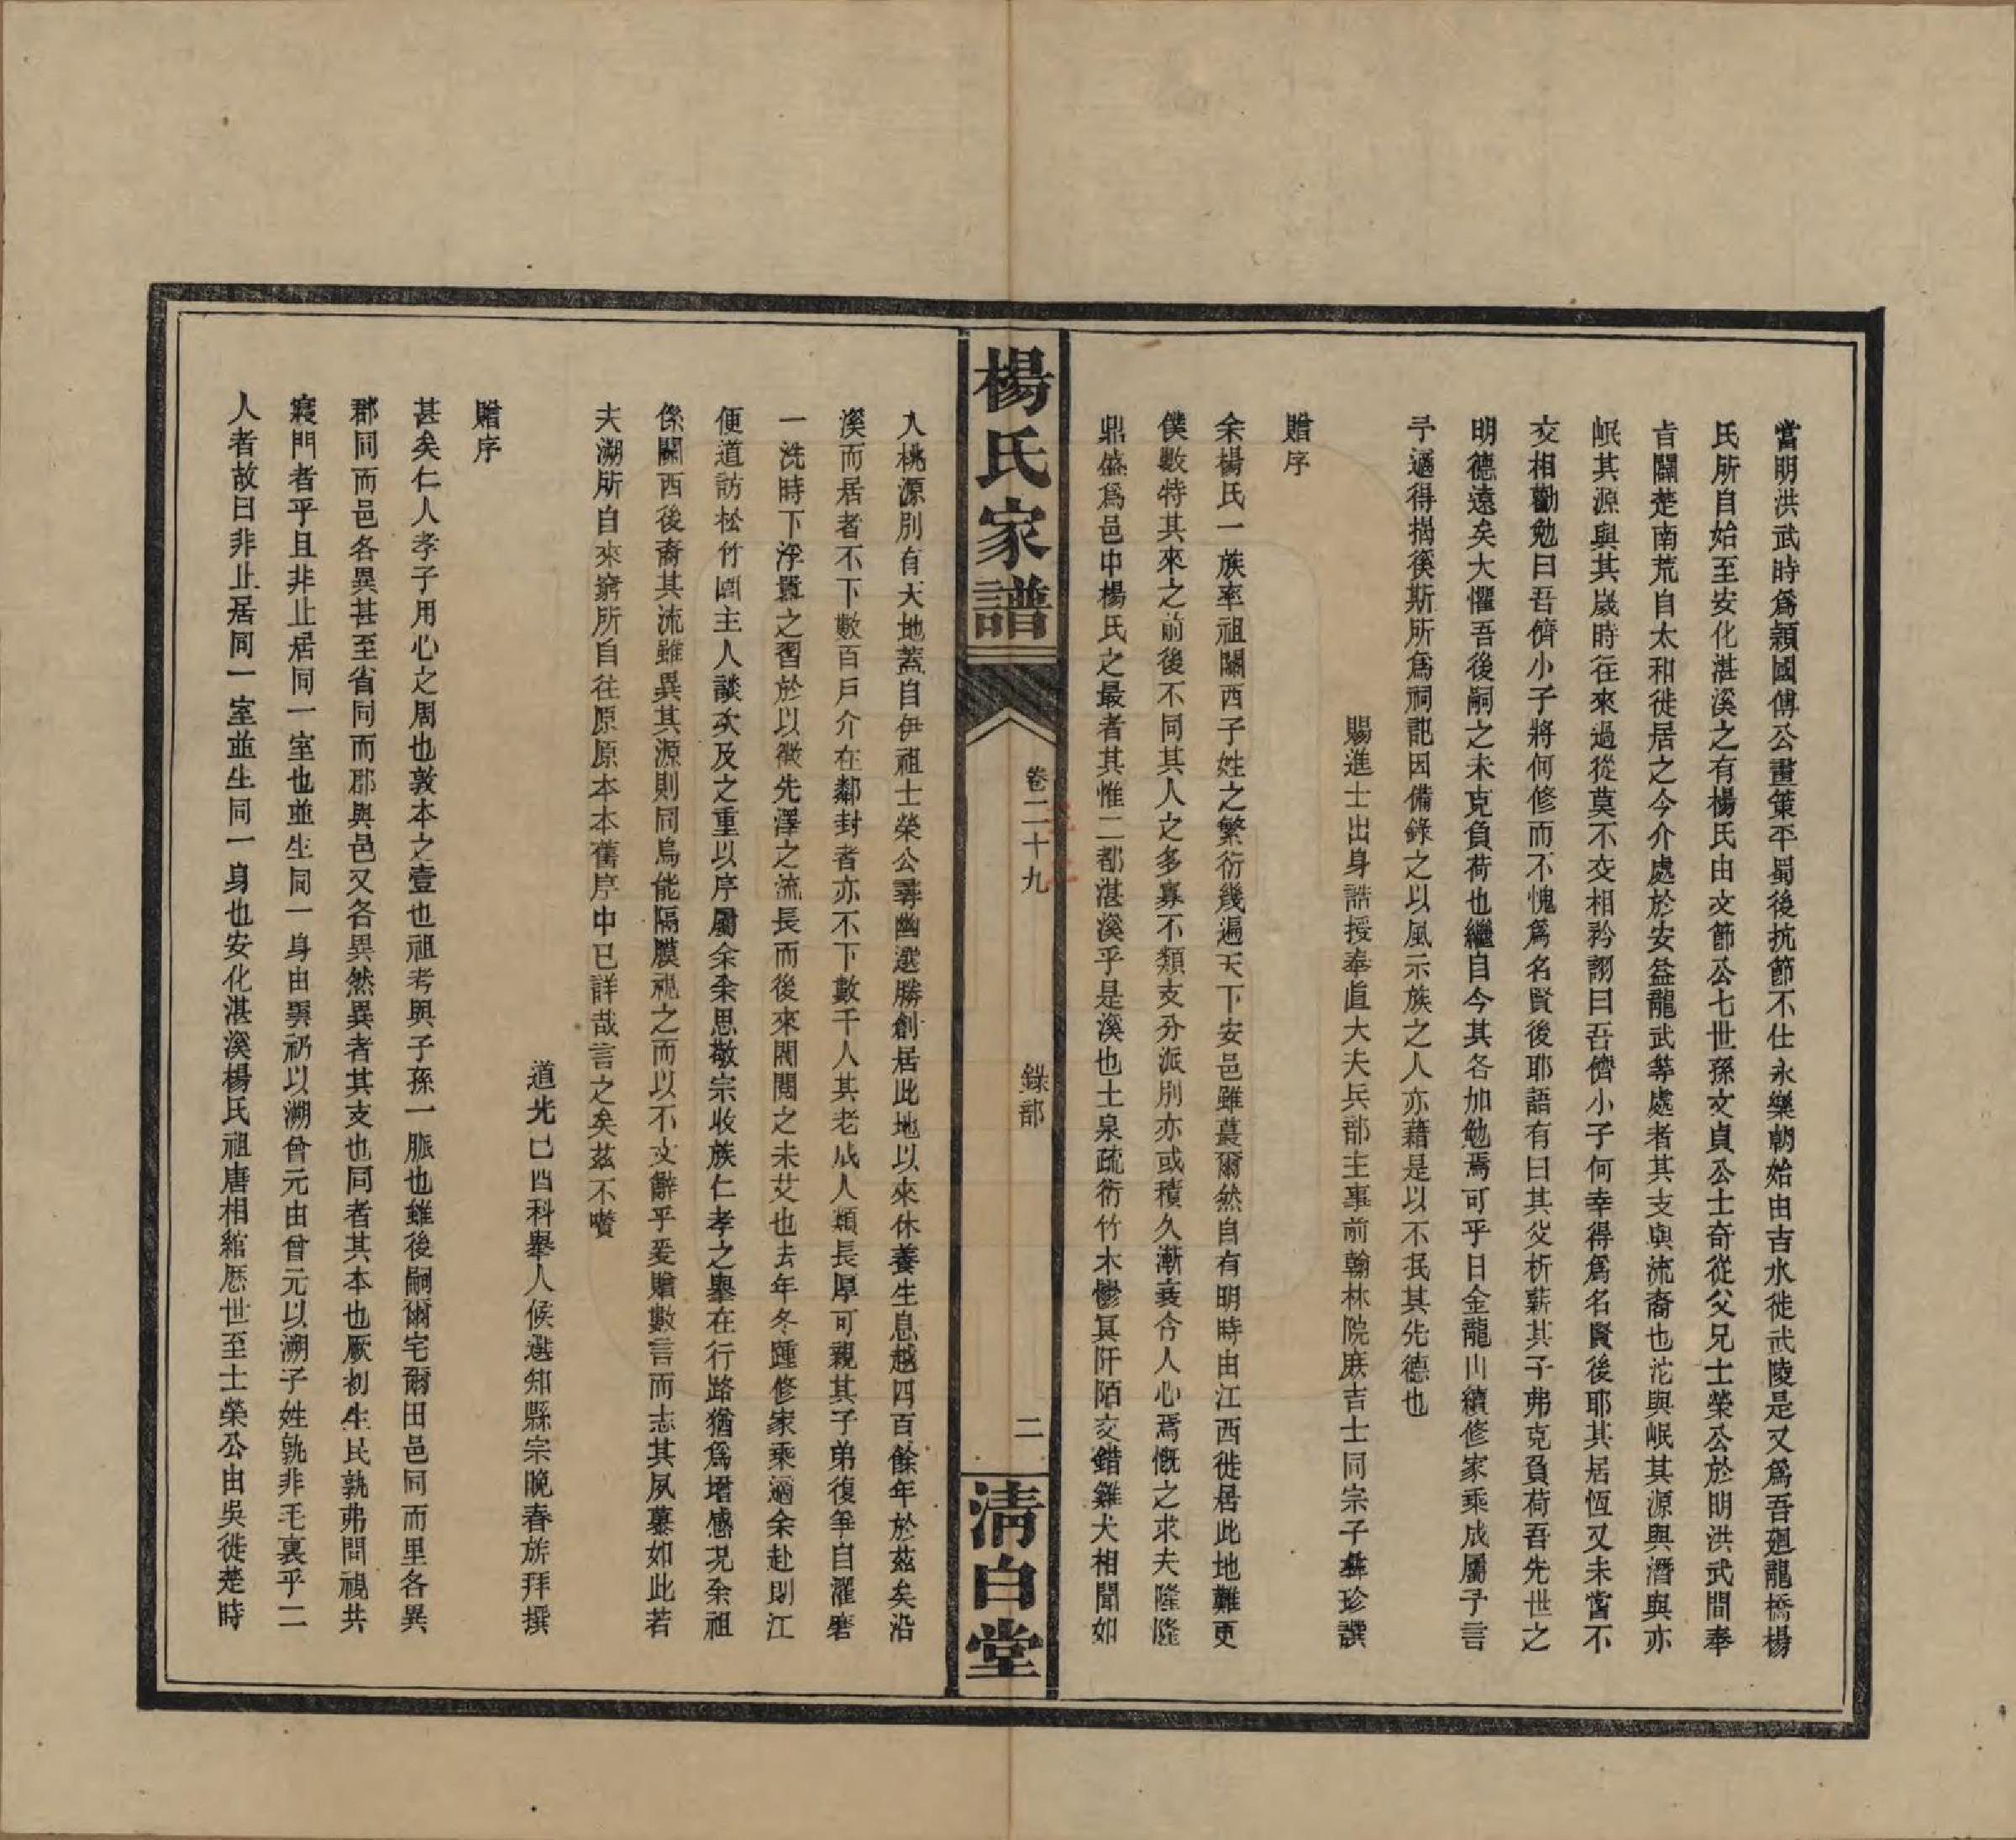 當明洪武時爲穎國傅公畫策平蜀後抗節不仕永樂朝始由吉水徙武陵是又爲吾廻龍橋楊
氏所自始至安化湛溪之有楊氏由文節公七世孫文貞公士奇從父兄士榮公於明洪武間奉
旨闢楚南荒自太和徙居之今介處於安益龍武等處者其支與流裔也沱與岷其源與潛與亦
岷其源與其歲時往來過從莫不交相矜詡曰吾儕小子何幸得爲名賢後耶其居恆又未嘗不
交相勸勉曰吾儕小子將何修而不愧爲名賢後耶語有曰其父析薪其子弗克負荷吾先世之
明德遠矣大懼吾後嗣之未克負荷也繼自今其各加勉焉可乎日金龍山續修家乘成屬予言
予邇得揭徯斯所爲祠記因備錄之以風示族之人亦藉是以不泯其先德也
賜進士出身誥授奉直大夫兵部主事前翰林院庶吉士同宗子彝珍譔
贈序
余楊氏一族率祖關西子姓之繁衍幾遍天下安邑雖蕞爾然自有明時由江西徙居此地難更
僕數特其來之前後不同其人之多寡不類支分派別亦或積久漸衰令人心焉慨之求夫隆隆
鼎盛爲邑中楊氏之最者其惟二都湛溪乎是溪也土泉疏衍竹木鬱冥阡陌交錯雞犬相聞如
楊氏家譜
卷二十九
錄部
二
淸白堂
入桃源別有天地蓋自伊祖士榮公尋幽選勝創居此地以來休養生息越四百餘年於茲矣沿
溪而居者不下數百戶介在鄰封者亦不下數千人其老成人類長厚可親其子弟復爭自濯磨
一洗時下浮囂之習於以徵先澤之流長而後來閥閱之未艾也去年冬踵修家乘適余赴則江
便道訪松竹園主人談次及之重以序屬余余思敬宗收族仁孝之舉在行路猶爲增感况余祖
係關西後裔其流雖異其源則同烏能隔膜視之而以不文辭乎爰贈數言而志其夙慕如此若
夫溯所自來窮所自往原原本本舊序中已詳哉言之矣茲不贅
道光已酉科舉人候選知縣宗晚春旂拜撰
贈序
甚矣仁人孝子用心之周也敦本之壹也祖考與子孫一脈也雖後嗣爾宅爾田邑同而里各異
郡同而邑各異甚至省同而郡與邑又各異然異者其支也同者其本也厥初生民孰弗問視共
寢門者乎且非止居同一室也並生同一身由雲礽以溯曾元由曾元以溯子姓孰非毛裏乎二
人者故曰非止居同一室並生同一身也安化湛溪楊氏祖唐相綰歷世至士榮公由吳徙楚時